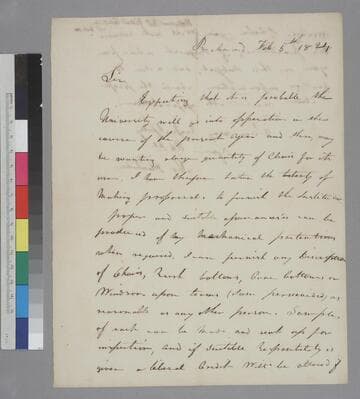 Richmond Feb. 5th 1824
Sir
Expecting that it is probable the
University will go into opperation in the
course of the present year and there may
be wanting a large quantity of Chairs for its
use. I have therefore taken the liberty of
Making proposeal. to furnish the Institution
proper and suitable
produced of my Mechanical pretentions
when required, I can furnish any Discription
of Chairs, Rush bottoms, Cane bottoms or
Windsor upon terms (I am persuaded) as
reasonable as any other person. Samples
of each can be made and sent up for
inspection, and if suitable
given a liberal Credit Will be allowed if